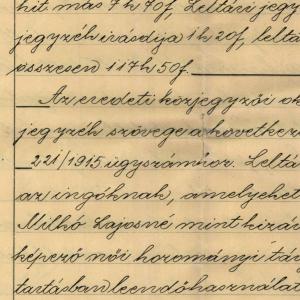 hit más 7 h 70f, Leltári jegy
jegyzék irásdija 1 h 20f, leltá
összesen 117 h 50f.
Az eredeti közjegyzői ok
jegyzék szövege a következ
221/1915 ügyszámhoz. Leltá
az ingóknak, amelyeket
Milkó Lajosné mint kizár
képező női hozományi tár
tartásban leendő használat